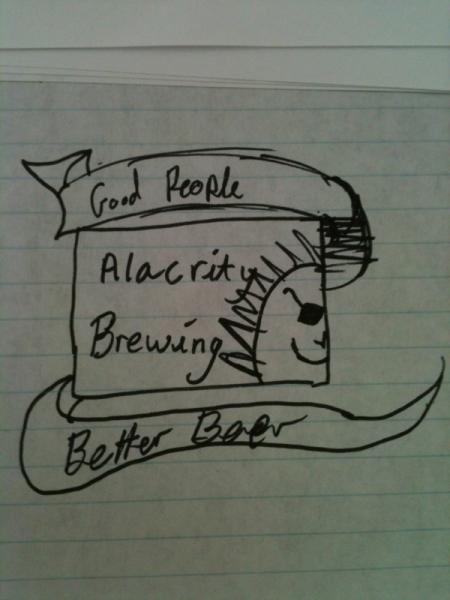 Good People
Alacrity
Brewing
Better Beer